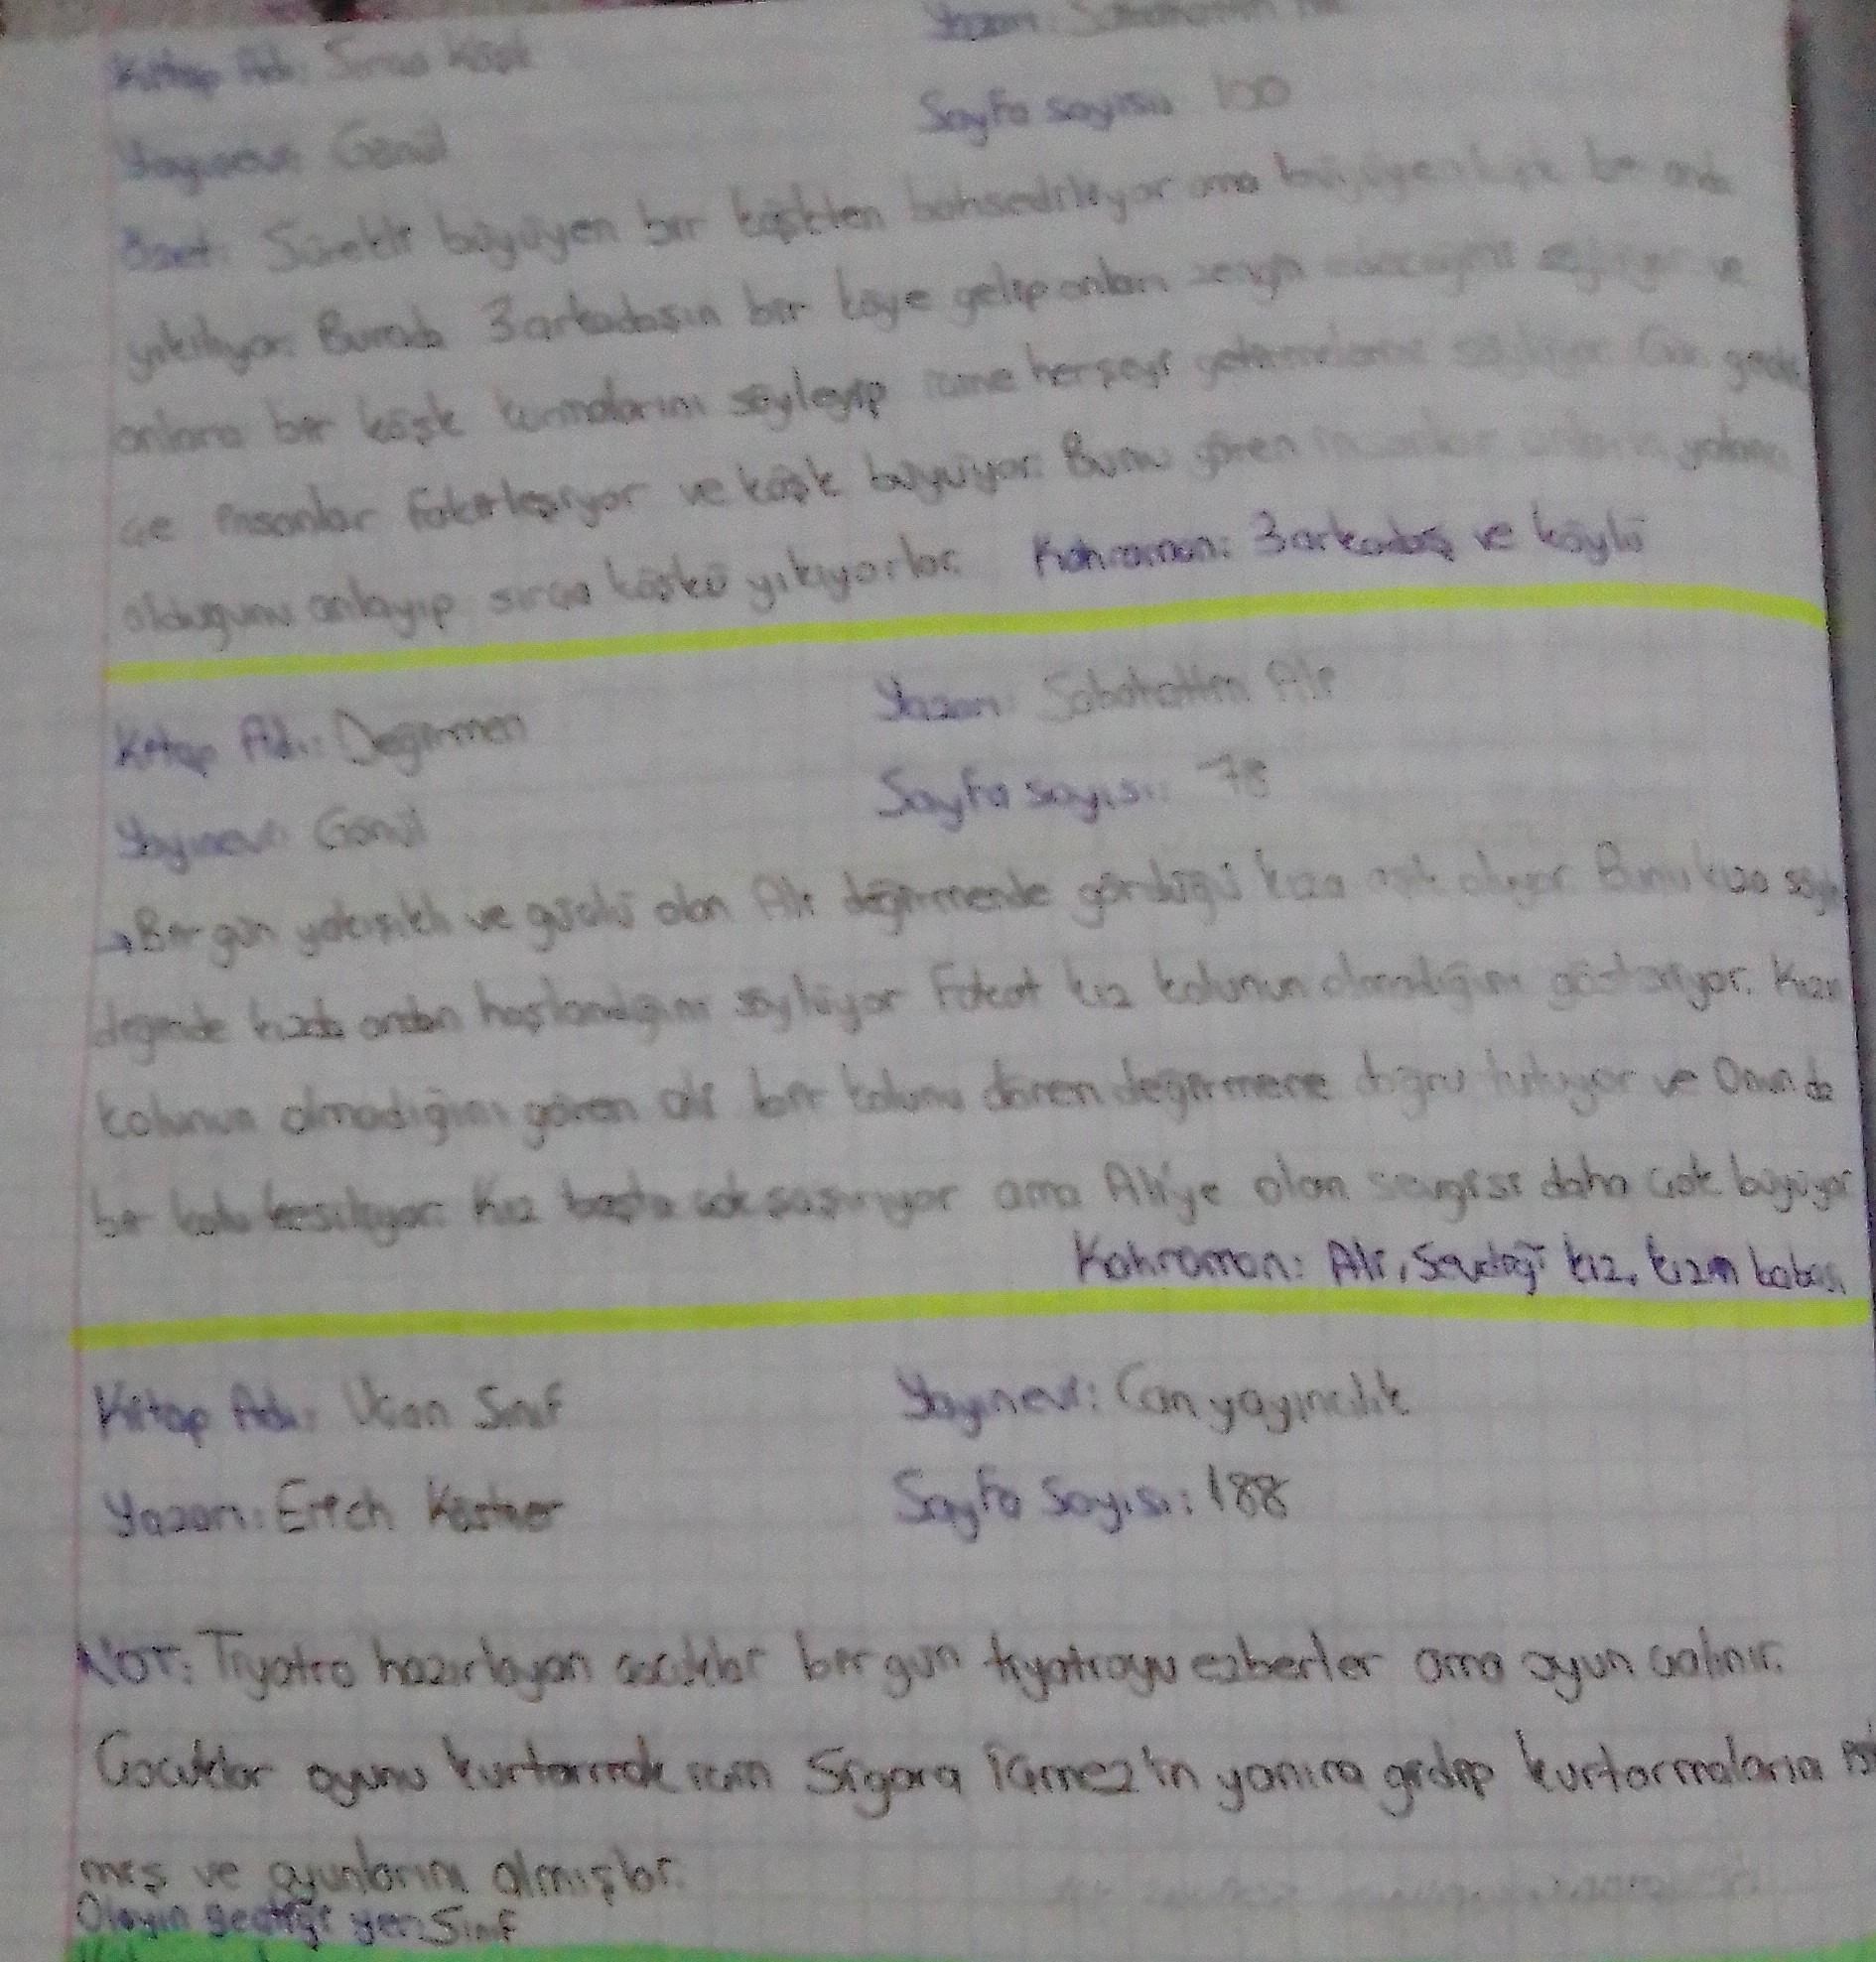 Kitap Adı: Sırça Köşk Yazan: Sabahattin Ali
Yayınevi: Gönül Sayfa sayısı: 100
Özet: Sürekli büyüyen bir köşkten bahsediliyor ama büyüyen köşk bir anda
yıkılıyor. Burada 3 arkadaşın bir köye gelip onları zengin edeceğini söylüyor ve
onlara bir köşk kurmalarını söyleyip içine herşeyi getirmelerini söylüyor. Gün geçtik
çe insanlar fakirleşiyor ve köşk büyüyor. Bunu gören insanlar onların yalancı
olduğunu anlayıp sırça köşkü yıkıyorlar. Kahraman: 3 arkadaş ve köylü
Kitap Adı: Değirmen Yazan: Sabahattin Ali
Yayınevi: Gönül Sayfa sayısı: 78
→ Bir gün yakışıklı ve güçlü olan Ali değirmende gördüğü kıza aşık oluyor Bunu kıza söyle
diğinde kızda ondan hoşlandığını söylüyor Fakat kız kolunun olmadığını gösteriyor. Kızın
kolunun olmadığını gören ali bir kolunu dönen değirmene doğru tutuyor ve Onun da
bir kolu kesiliyor. Kız başta çok şaşırıyor ama Ali'ye olan sevgisi daha çok büyüyor
Kahraman: Ali, Sevdiği kız, kızın babası
Kitap Adı: Uçan Sınıf Yayınevi: Can yayıncılık
Yazan: Erich Kästner Sayfa Sayısı: 188
NOT: Tiyatro hazırlayan çocuklar bir gün tiyatroyu ezberler ama oyun çalınır.
Çocuklar oyunu kurtarmak için Sigara İçmez'in yanına gidip kurtarmalarını
miş ve oyunlarını almışlar.
Olayın geçtiği yer: Sınıf